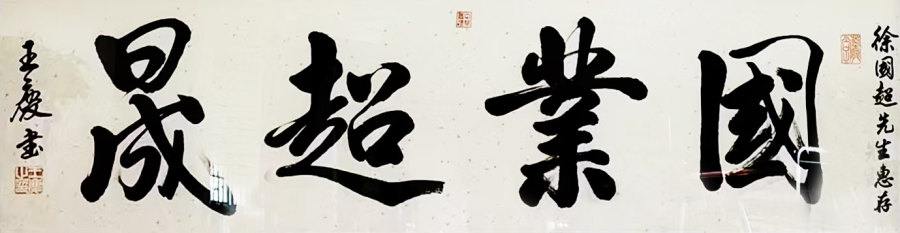 徐國超先生惠存
國業超晟
王慶書